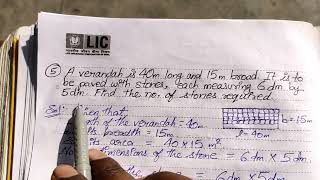 LIC
भारतीय जीवन बीमा निगम
⑤ A verandah is 40m long and 15m broad. It is to
be paved with stones, each measuring 6dm by
5dm. Find the no. of stones required.
Sol: that,
of the verandah = 40m
its breadth = 15m
its area = 40 × 15 m²
dimensions of the stone = 6dm × 5dm
b = 15m
l = 40m